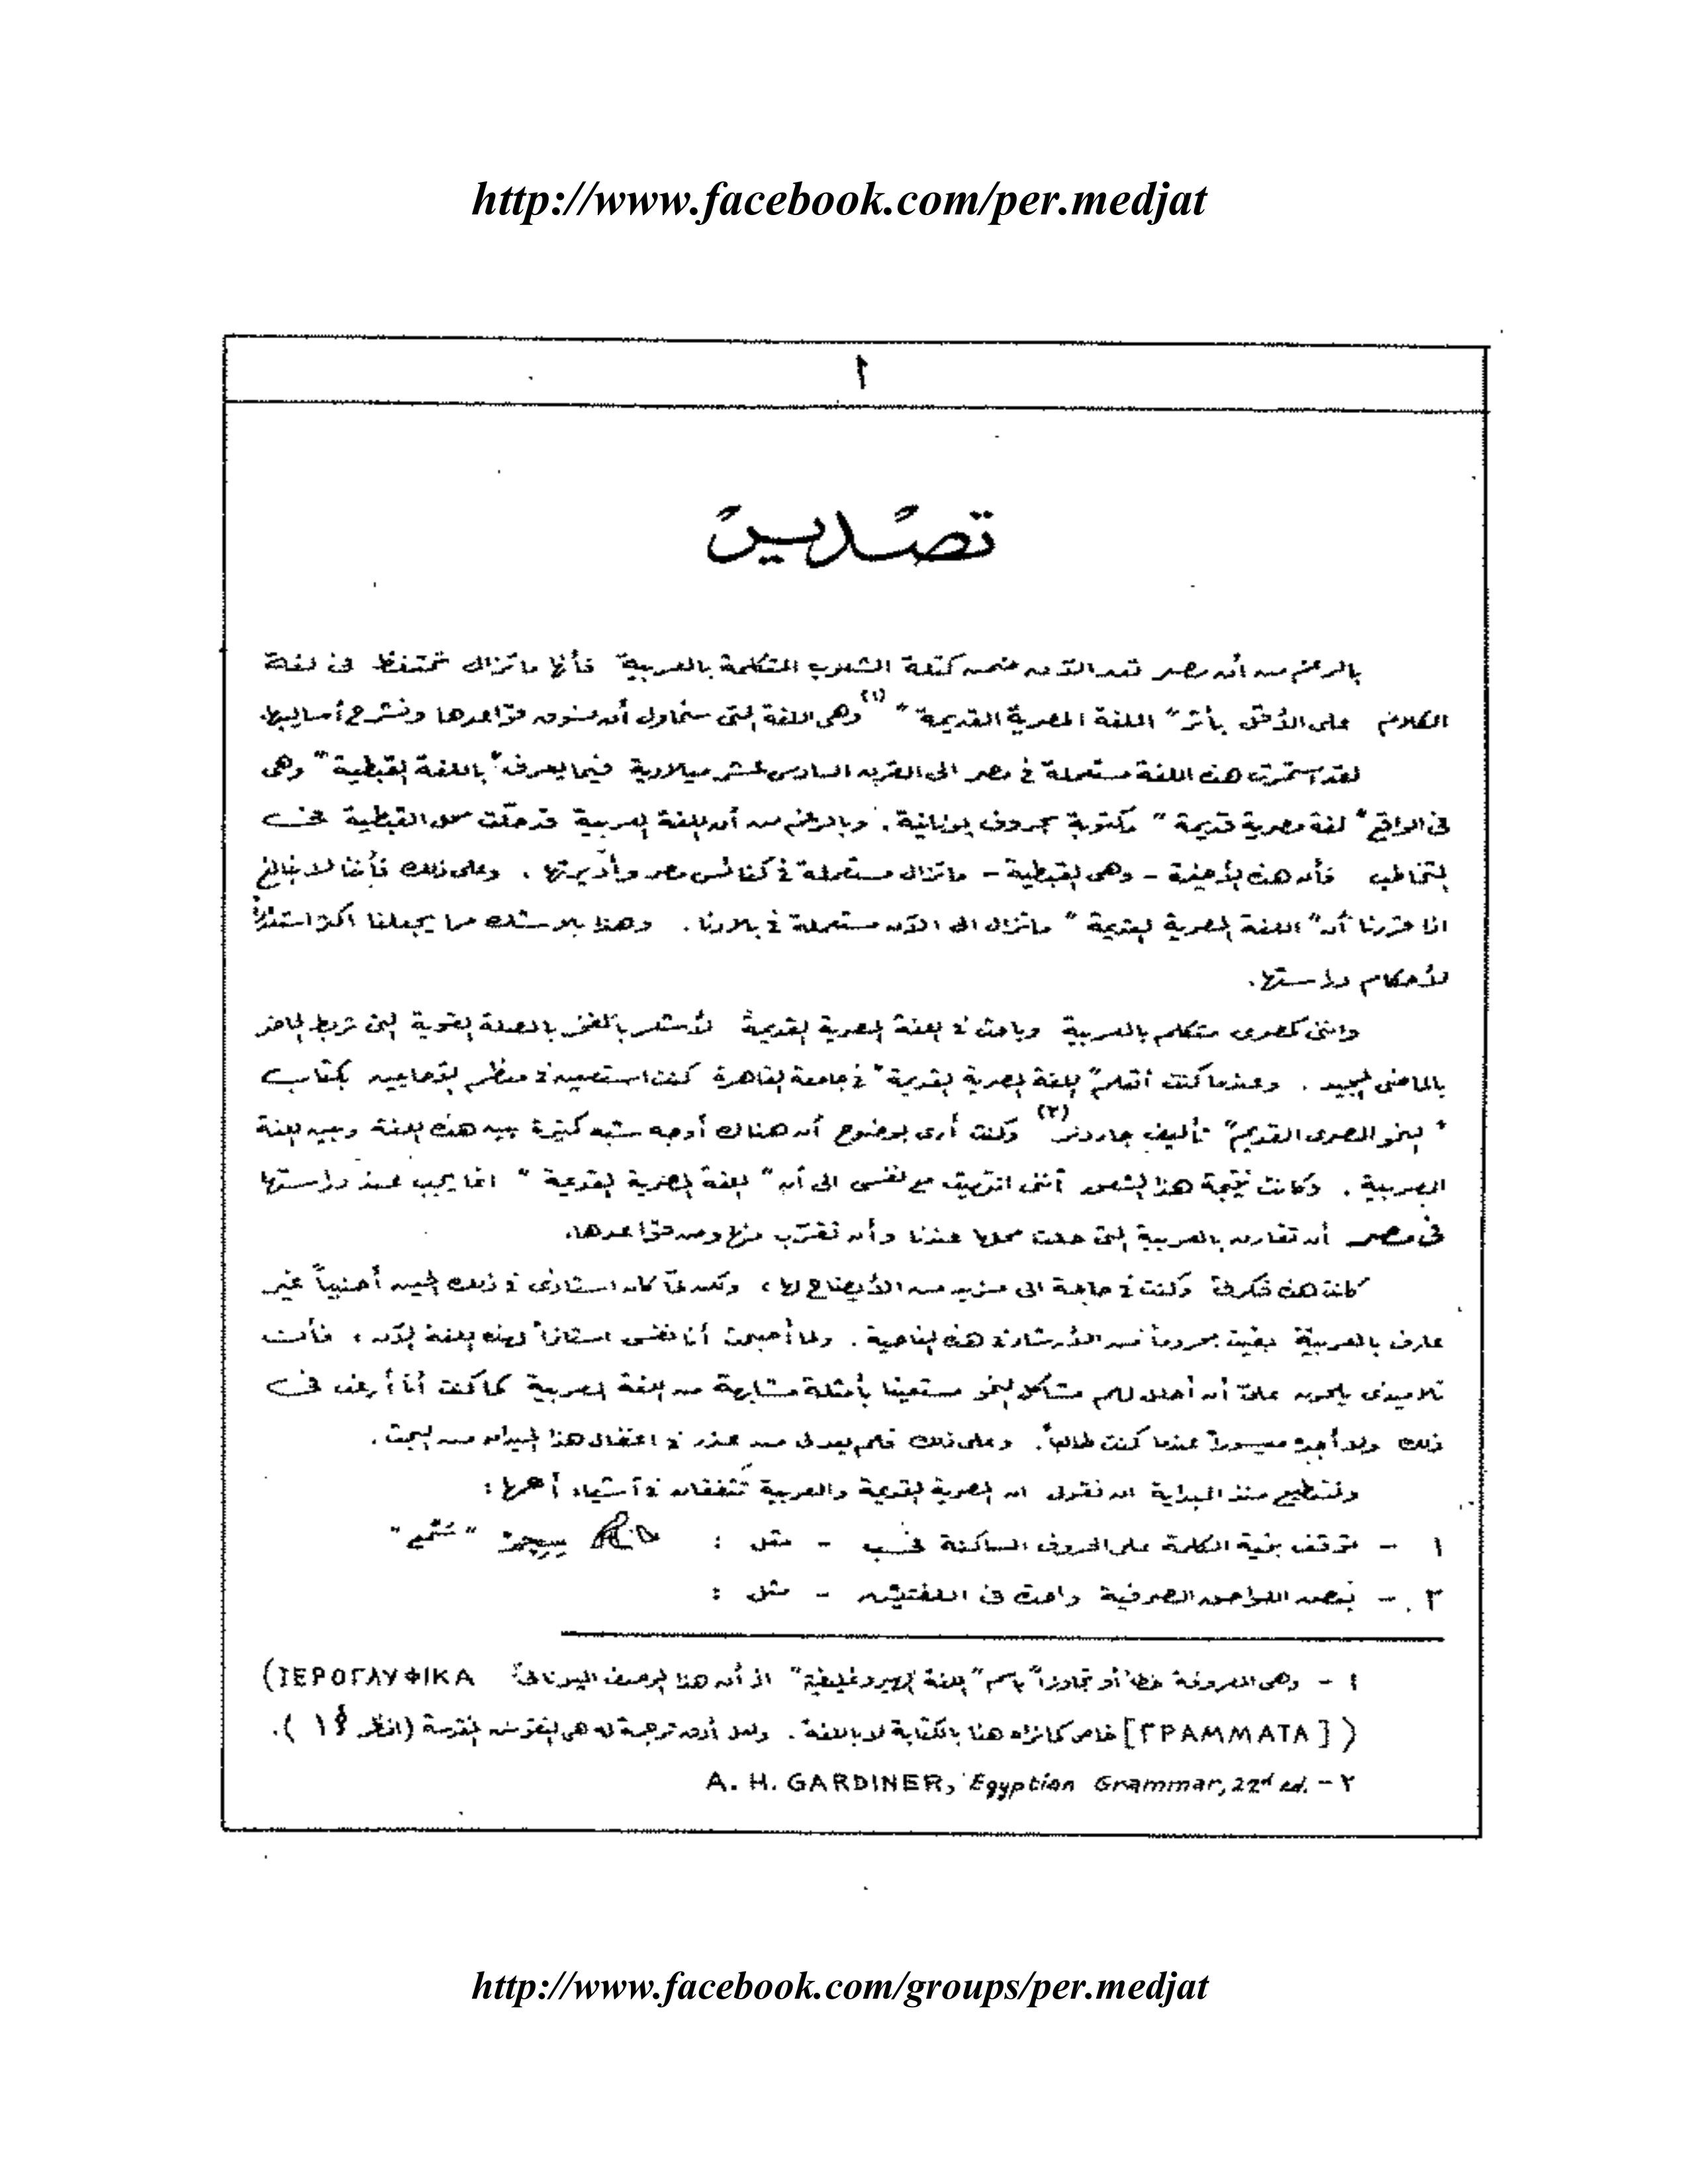 http://www.facebook.com/per.medjat
١
تصدير
بالرغم من أن مصر تعد الآن ضمن كتلة الشعوب المتكلمة بالعربية فأنها ماتزال تحتفظ فى لغة
الكلام على الأقل بأثر " اللغة المصرية القديمة " (١) وهى اللغة التى سنحاول أن نسوق قواعدها ونشرح أساليبها.
لقد استمرت هذه اللغة مستعملة فى مصر الى القرن السادس عشر ميلادية فيما يعرف "باللغة القبطية" وهى
فى الواقع " لغة مصرية قديمة " مكتوبة بحروف يونانية . وبالرغم من أن اللغة العربية قد حلّت محل القبطية فى
التخاطب فأن هذه الأخيرة - وهى القبطية - ماتزال مستعملة فى كنائس مصر وأديرتها . وعلى ذلك فأننا لا نبالغ
اذا قررنا أن " اللغة المصرية القديمة " ماتزال الى الآن مستعملة فى بلادنا . وهذا بلا شك مما يجعلنا أكثر استعداداً
لأحكام دراستها.
واننى كمصرى متكلم بالعربية وباحث فى اللغة المصرية القديمة لأشعر بالفخر بالصلة القوية التى تربط الحاضر
بالماضى المجيد . وعندما كنت أتعلم " اللغة المصرية القديمة " فى جامعة القاهرة كنت استعين فى معظم الأحايين بكتاب
" النحو المصرى القديم " تأليف جاردنر (٢) وكنت أرى بوضوح أن هناك أوجه شبه كثيرة بين هذه اللغة وبين اللغة
العربية . وكانت نتيجة هذا الشعور أننى انتهيت مع نفسى الى أن " اللغة المصرية القديمة " انما يجب عند دراستها
فى مصر أن تقارن بالعربية التى حلت محلها عندنا وأن نقترب منها ومن قواعدها.
كانت هذه فكرتى وكنت فى حاجة الى مزيد من الأيضاح لها ، ولكن لمّا كان استاذى فى ذلك الحين أجنبياً غير
عارف بالعربية بقيت محروماً من الأرشاد فى هذه الناحية . ولما أصبحت أنا نفسى استاذاً لهذه اللغة الآن ، فأنت
تلاميذى يلحون علىّ أن أحلل لهم مشاكل النحو مستعينا بأمثلة مشابهة من اللغة العربية كما كنت أنا أرغب فى
ذلك ولا أجده ميسوراً عندما كنت طالباً . وعلى ذلك فلم يعد لى من عذر فى اغفال هذا الميدان من البحث .
ونستطيع منذ البداية ان نقول ان المصرية القديمة والعربية تتفقان فى أشياء أهمها :
١ - تتوقف بنية الكلمة على الحروف الساكنة فحسب - مثل :
٢ - بعض اللواحق الصرفية واحدة فى اللغتين - مثل :
١ - وهى المعروفة خطأ أو تجاوزاً باسم " اللغة الهيروغليفية " اذ أن هذا الوصف اليونانى (ΙΕΡΟΓΛΥΦΙΚΑ
([ΓΡΑΜΜΑΤΑ] خاص كما نراه هنا بالكتابة لا باللغة . ولعل أدق ترجمة له هى النقوش المقدسة (انظر § ١ ).
٢ - A. H. GARDINER, Egyptian Grammar, 22d ed.
http://www.facebook.com/groups/per.medjat